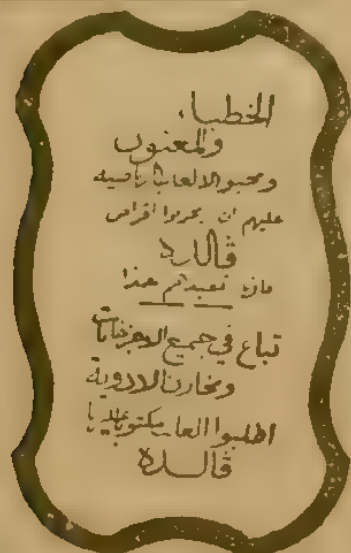 الخطباء
والمغنون
ومحبو الالعاب الرياضية
عليهم ان يجربوا اقراص
ڤالدة
فان تفيدكم هذا
تباع في جميع الاجزخانات
ومخازن الادوية
اطلبوا العلب مكتوبا عليها
ڤالدة